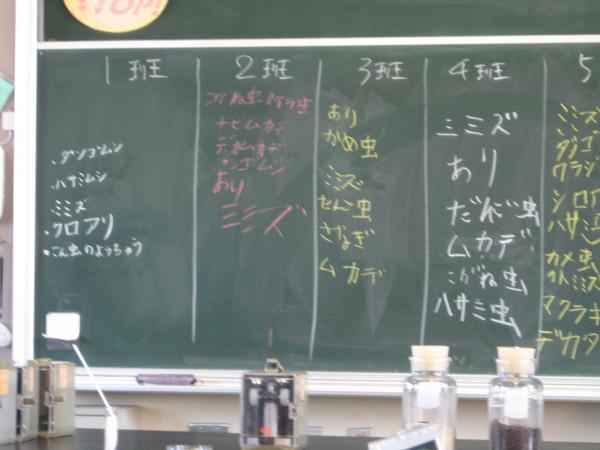 TOP!
1班
・ダンゴムシ
・ハサミムシ
・ミミズ
・クロアリ
・こん虫のようちゅう
2班
こがね虫のよう虫
チビムカデ
デカムカデ
ダンゴムシ
あり
ミミズ
3班
あり
かめ虫
ミミズ
だんご虫
さなぎ
ムカデ
4班
ミミズ
あり
だんご虫
ムカデ
こがね虫
ハサミ虫
5
ミミズ
ダンゴ
ワラジ
シロア
ハサミ
カメ虫
デカダ